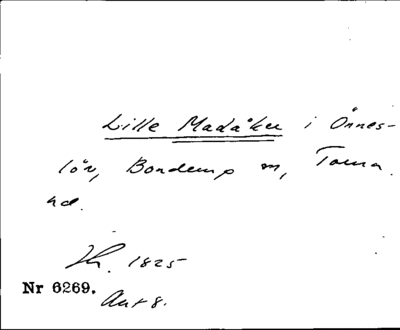 Lille Madåker i Önnes-
löv, Bonderup sn, Torna
hd.
Th. 1825
Nr 6269.
Akt 8.